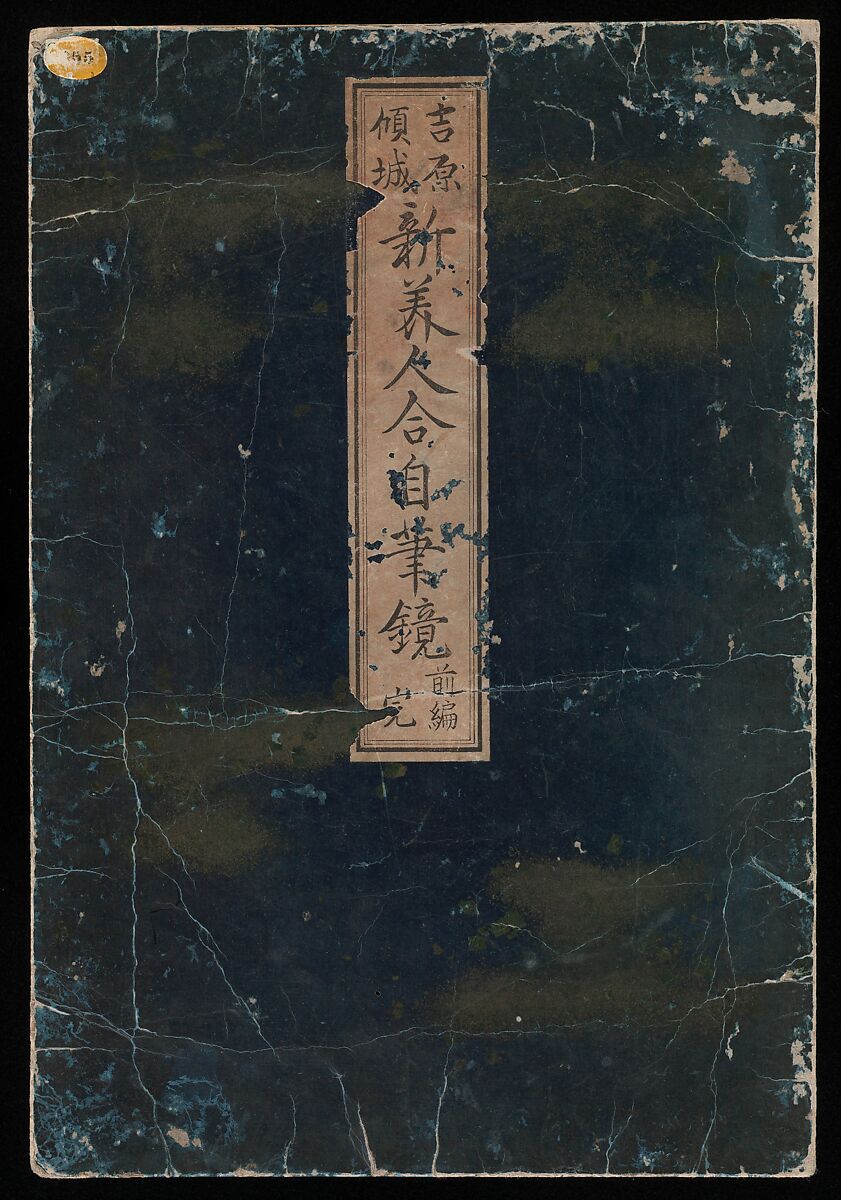 吉原
傾城
新美人合自筆鏡
前編
完